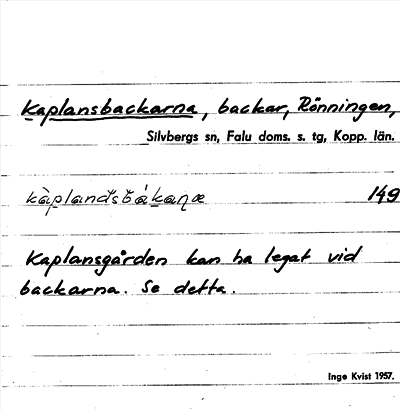 Kaplansbackarna, backar, Rönningen,
Silvbergs sn, Falu doms. s. tg, Kopp. län.
149
Kaplansgården kan ha legat vid
backarna. Se detta.
Inge Kvist 1957.